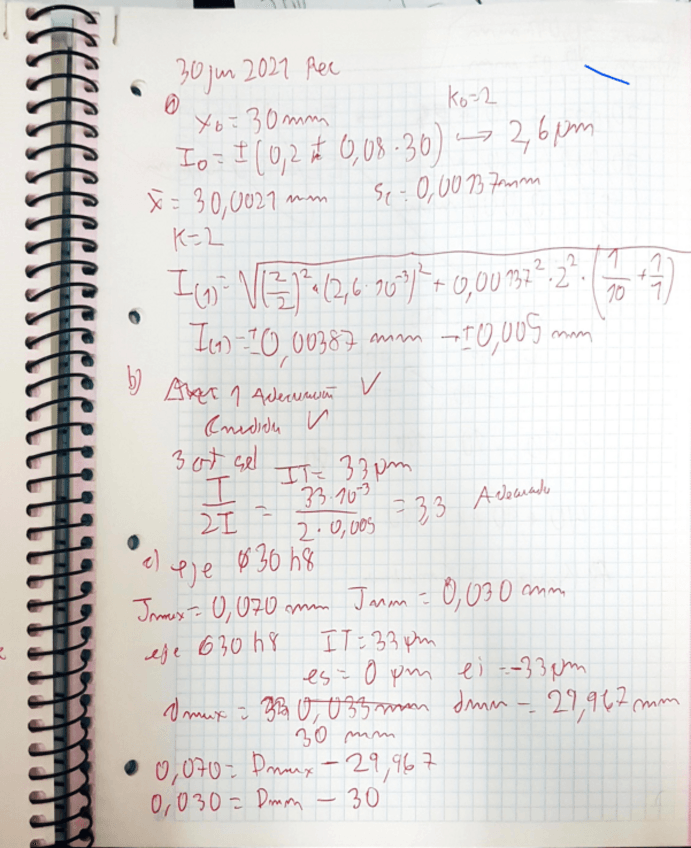 30 jun 2021 Rec
a)
K₀=2
x₀ = 30 mm
I₀ = ±(0,2 ± 0,08·30) → 2,6 µm
x̄ = 30,0021 mm   Sc = 0,00137mm
K=2
I(1) = √((2/2)²·(2,6·10⁻³)² + 0,00137²·2²·(1/10 + 1/1)
I(1) = ±0,00387 mm → ±0,005 mm
b) 1 Adecuación ✓
C medida ✓
3 crt sel   IT = 33 µm
I/2I = 33·10⁻³/2·0,005 = 3,3   Adecuado
c) eje ϕ30 h8
Jmax = 0,070 mm   Jmin = 0,030 mm
eje ϕ30 h8   IT=33 µm
es = 0 µm   ei = -33 µm
dmax = 0,033 mm   dmin = 29,967 mm
30 mm
0,070 = Dmax - 29,967
0,030 = Dmin - 30